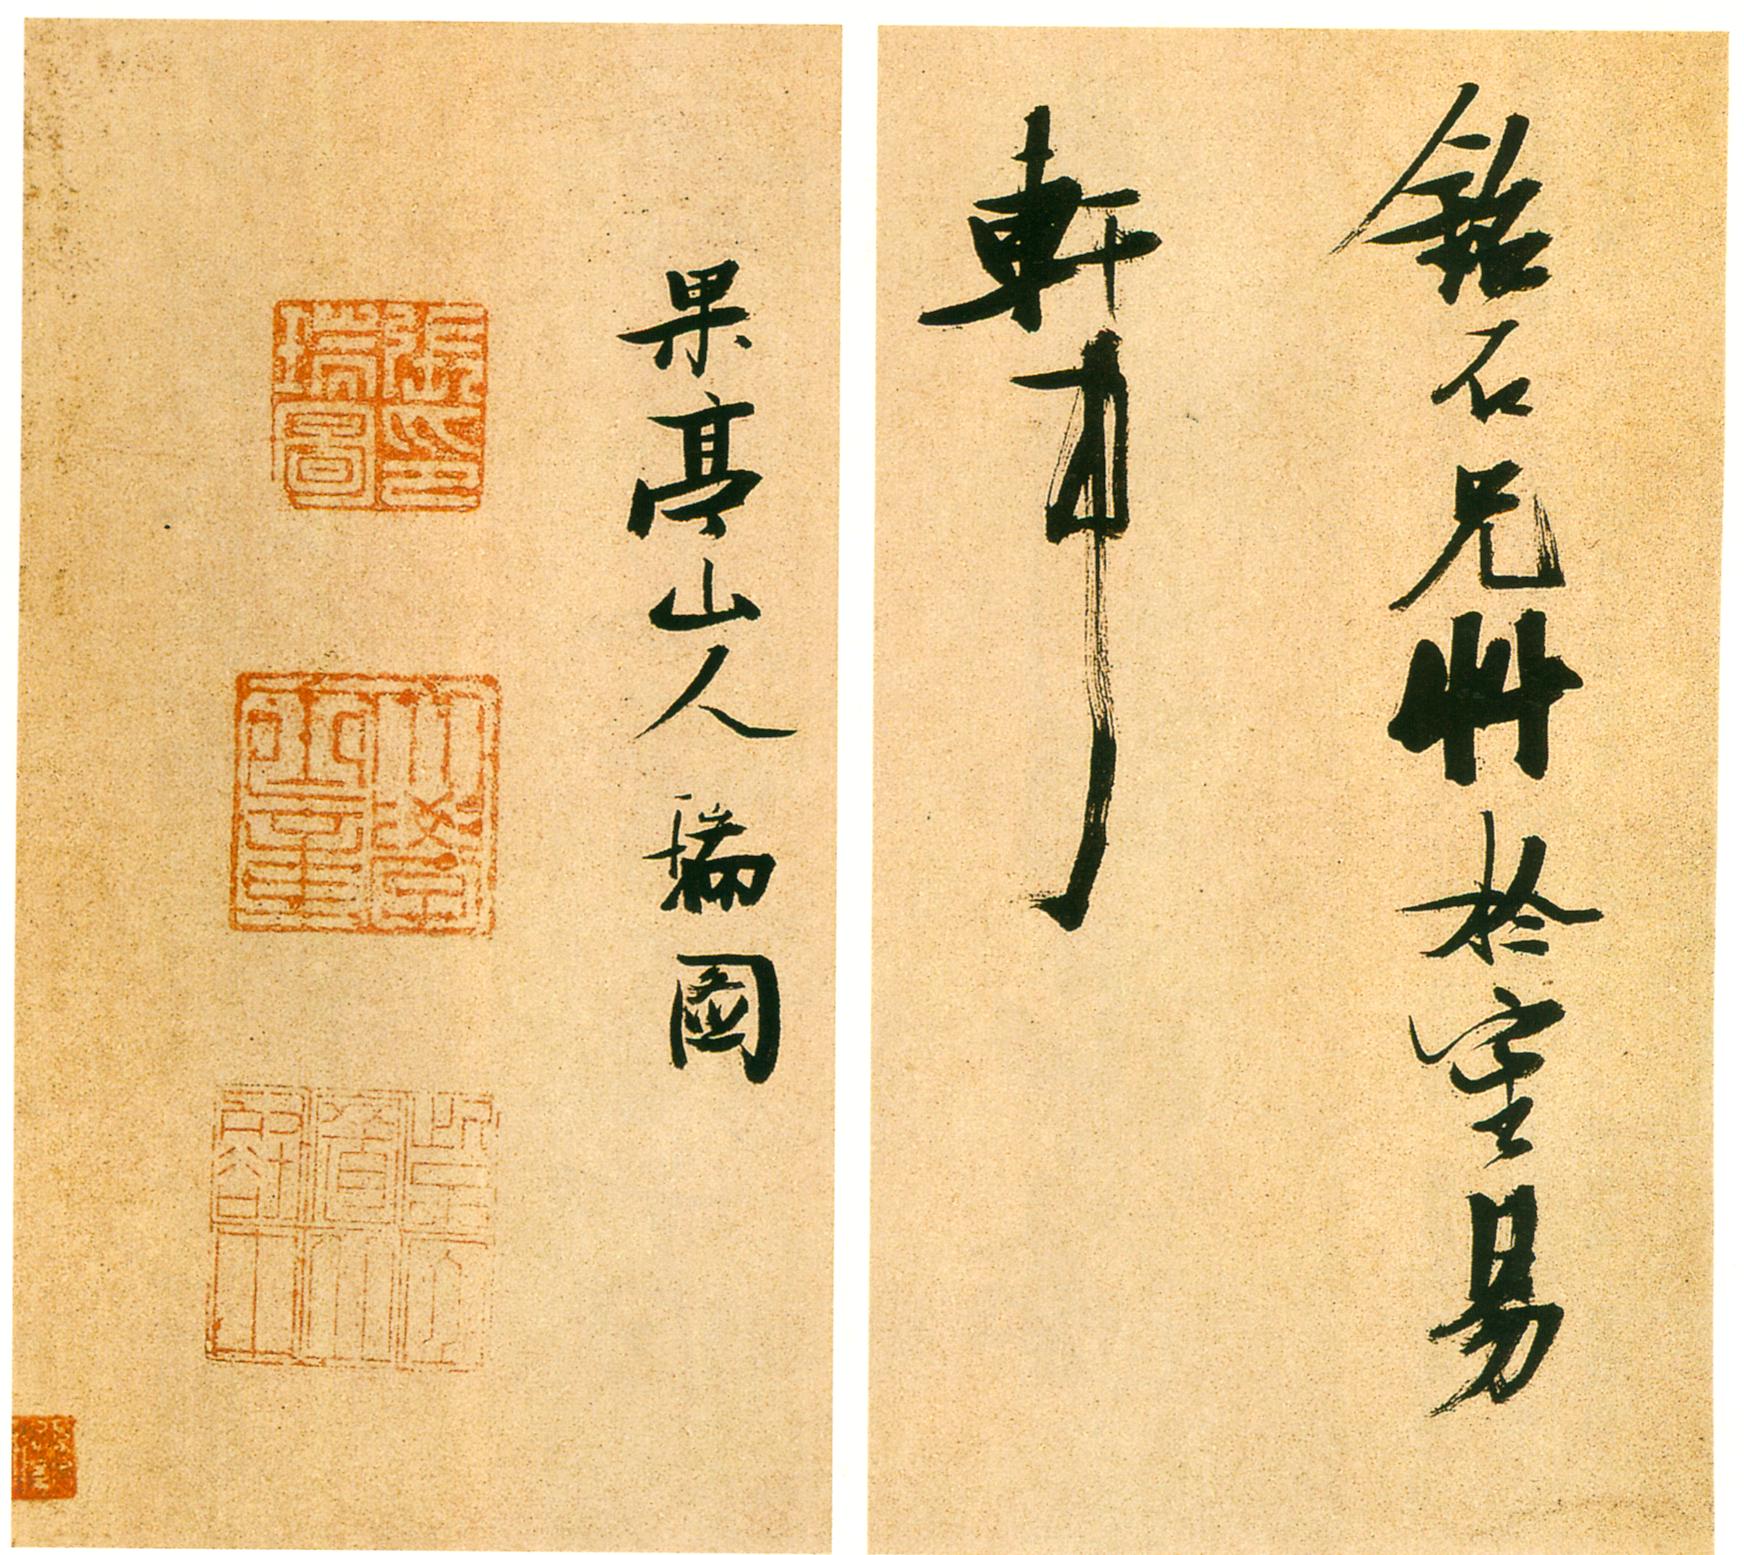 銘石兄艸於室易
軒中
果亭山人瑞圖
張印
瑞圖